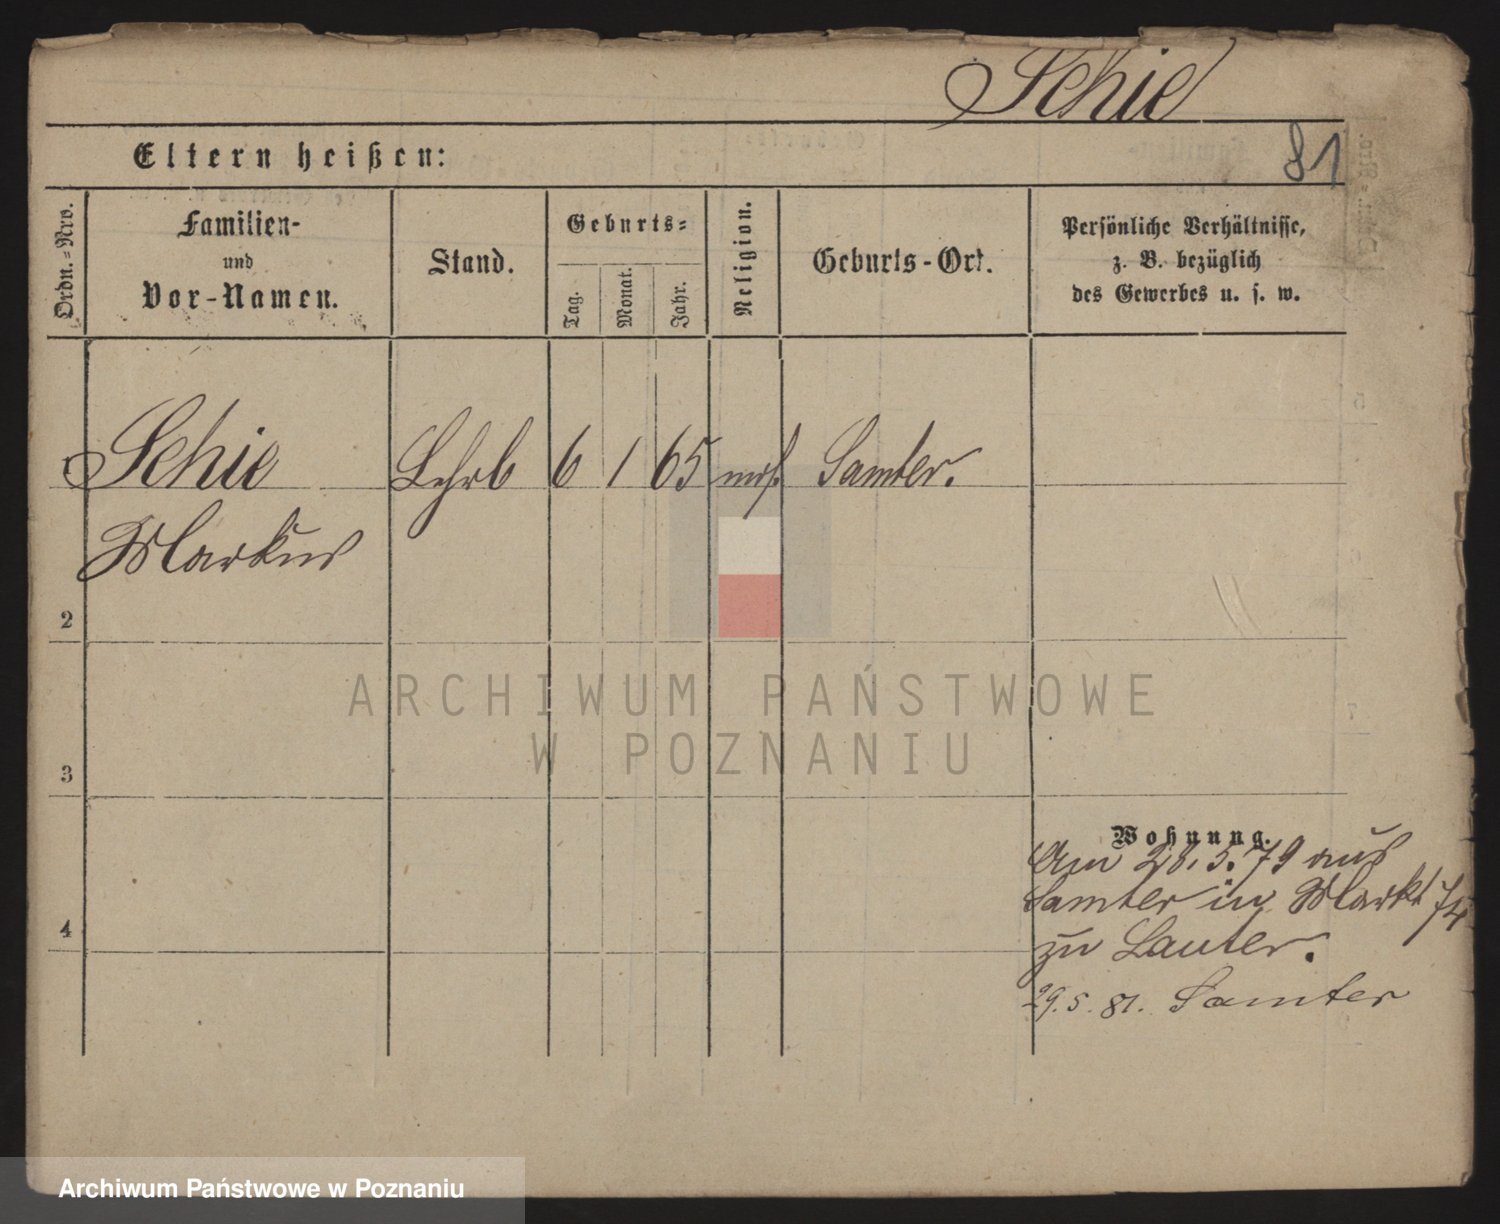 Schie
81
Eltern heißen:
Ordn.-Nro.
Familien-
und
Vor-Namen.
Stand.
Geburts-
Tag.
Monat.
Jahr.
Religion.
Geburts-Ort.
Persönliche Verhältnisse,
z. B. bezüglich
des Gewerbes u. s. w.
Schie Lehrb 6 1 65 mos. Samter.
Markus
2
ARCHIWUM PAŃSTWOWE
W POZNANIU
3
Wohnung.
Am 28.5.79 aus
Samter in Markt 74
zu Lauter.
4
29.5.81. Samter
Archiwum Państwowe w Poznaniu